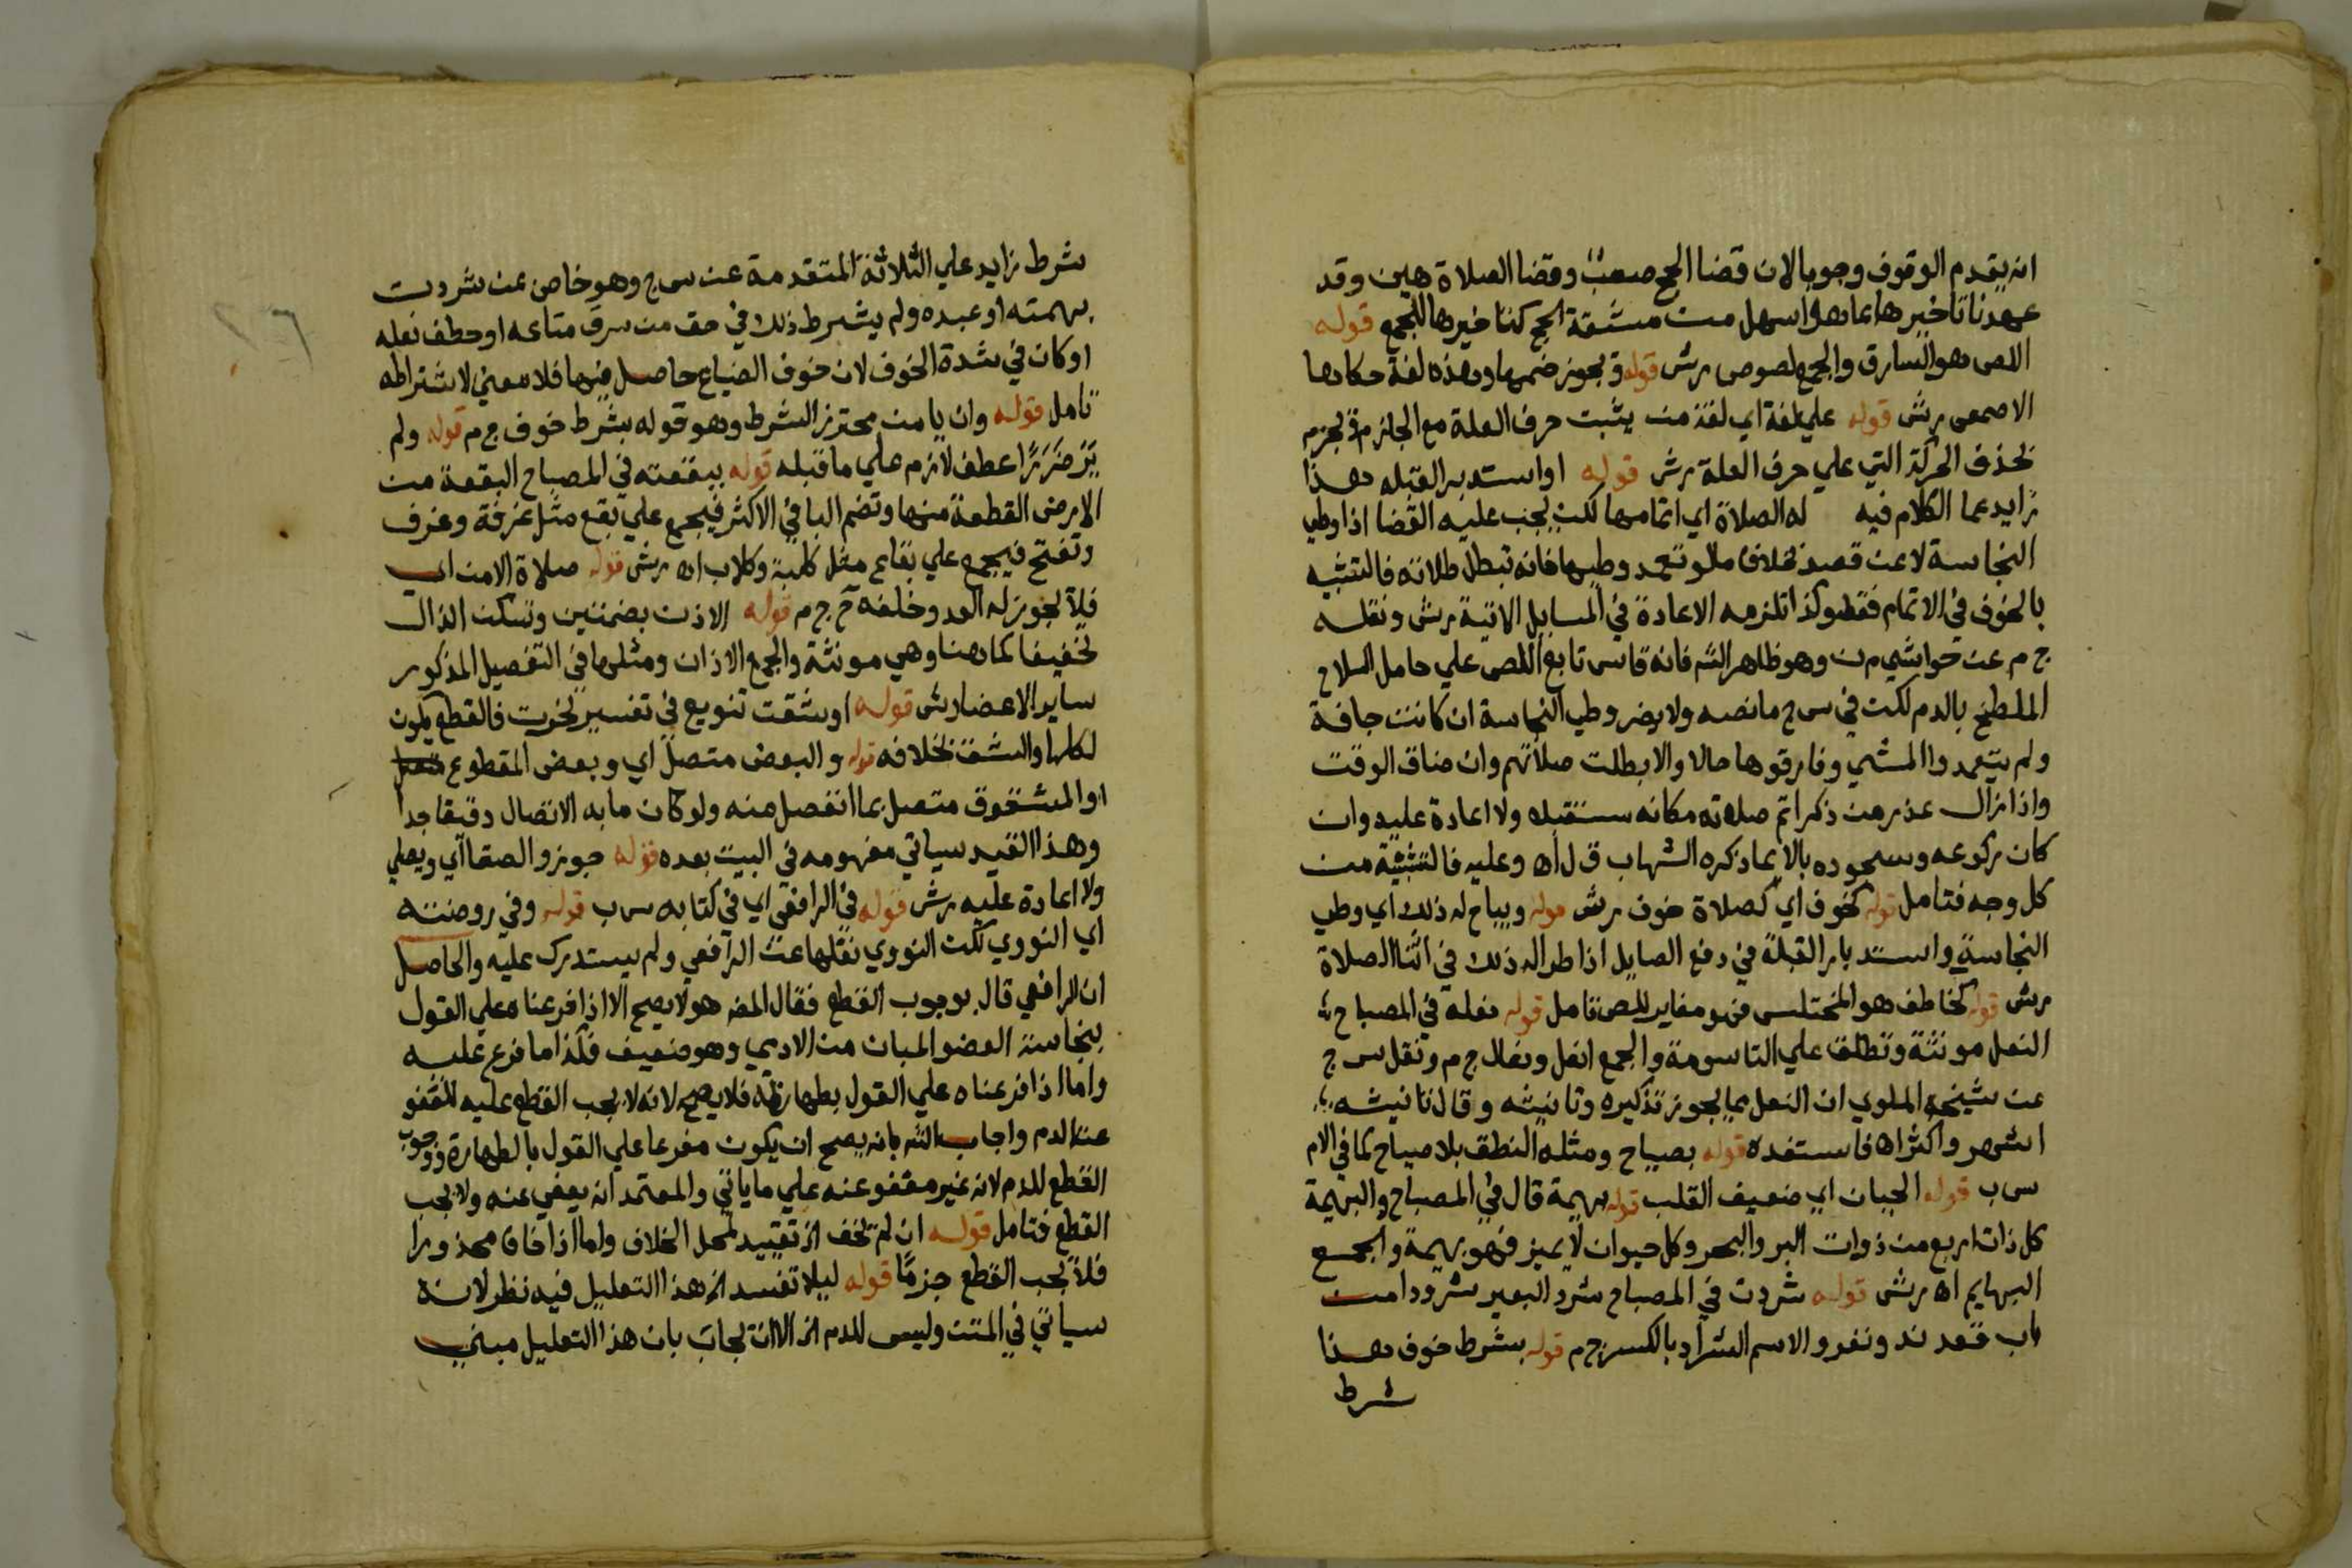 انه يقدم الوقوف وجوبا لان قضا الحج صعب وقضا الصلاة هين وقد
عهدنا تاخيرها بما هو اسهل من مشقة الحج كتاخيرها للجمع قوله
اللص هو السارق والجمع لصوص رش قوله ويجوز ضمها وهذه لغة حكاها
الاصمعي رش قوله علي لغة اي لغة من يثبت حرف العلة مع الجازم ويجزم
بحذف الحركة التي علي حرف العلة رش قوله او استدبر القبله هذا
زايد عما الكلام فيه له الصلاة اي اتمامها لكن يجب عليه القضا اذا وطي
النجاسة لا عن قصد بخلاف ما لو تعمد وطيها فانه تبطل صلاته فالتشبيه
بالخوف في الاتمام فقط وكذا تلزمه الاعادة في المسايل الاتية رش ونقله
ج م عن حواشي م ن وهو ظاهر الش فانه قاس تابع اللص علي حامل السلاح
الملطخ بالدم لكن في س ج ما نصه ولا يضر وطي النجاسة ان كانت جافة
ولم يتعمدوا المشي وفارقوها حالا والا بطلت صلاتهم وان ضاق الوقت
واذا زال عذر من ذكر اتم صلاته مكانه مستقبله ولا اعادة عليه وان
كان ركوعه وسجوده بالايما ذكره الشهاب ق ل اه وعليه فالتشبيه من
كل وجه فتامل قوله كخوف اي كصلاة خوف رش قوله ويباح له ذلك اي وطي
النجاسة واستدبار القبلة في دفع الصايل اذا طرا له ذلك في اثنا الصلاة
رش قوله كخاطف هو المختلس فهو مغاير للص تامل قوله نعله في المصباح
النعل مونثة وتطلق علي التاسومة والجمع انعل ونعال ج م ونقل س ج
عن شيخه الملوي ان النعل مما يجوز تذكيره وتانيثه وقال تانيثه
اشهر واكثر اه فاستفده قوله بصياح ومثله النطق بلا صياح كما في الام
س ب قوله الجبان اي ضعيف القلب قوله بهيمة قال في المصباح والبهيمة
كل ذات اربع من ذوات البر والبحر وكل حيوان لا يميز فهو بهيمة والجمع
البهايم اه رش قوله شردت في المصباح شرد البعير شرودا من
باب قعد ند ونفر والاسم الشراد بالكسر ج م قوله بشرط خوف هذا
شرط
شرط زايد علي الثلاثة المتقدمة عن س ج وهو خاص بمن شردت
بهيمته او عبده ولم يشرط ذلك في حق من سرق متاعه او خطف نعله
او كان في شدة الخوف لان خوف الضياع حاصل فيها فلا معني لاشتراطه
تامل قوله وان يامن محترز الشرط وهو قوله بشرط خوف ج م قوله ولم
يَرَ ضَرَرًا عطف لازم علي ما قبله قوله ببقعته في المصباح البقعة من
الارض القطعة منها وتضم البا في الاكثر فيجمع علي بقع مثل غرفة وغرف
وتفتح فيجمع علي بقاع مثل كلبة وكلاب اه رش قوله صلاة الامن اي
فلا يجوز له العدو وخلفه ج م قوله الاذن بضمتين وتسكن الذال
تخفيفا كما هنا وهي مونثة والجمع الاذان ومثلها في التفصيل المذكور
ساير الاعضا رش قوله او شقت تنويع في تفسير نخرت فالقطع يكون
لكلها والشق بخلافه قوله والبعض متصل اي وبعض المقطوع متصل
او المشقوق متصل بما انفصل منه ولو كان ما به الاتصال دقيقا جدا
وهذا القيد سياتي مفهومه في البيت بعده قوله اي ويصلي
ولا اعادة عليه رش قوله في الرافعي اي في كتابه س ب قوله وفي روضته
اي النووي لكن النووي نقلها عن الرافعي ولم يستدرك عليه والحاصل
ان الرافعي قال بوجوب القطع فقال المص هو لا يصح الا اذا فرعناه علي القول
بنجاسة العضو المبان من الادمي وهو ضعيف فكذا ما فرع عليه
واما اذا فرعناه علي القول بطهارته فلا يصح لانه لا يجب القطع عليه للعفو
عن الدم واجاب الش بانه يصح ان يكون مفرعا علي القول بالطهارة ووجوب
القطع للدم لانه غير معفو عنه علي ما ياتي والمعتمد انه يعفي عنه ولا يجب
القطع فتامل قوله ان لم تخف الخ تقييد لمحل الخلاف واما اذا خاف محذورا
فلا يجب القطع جزمًا قوله ليلا تفسد الخ هذا التعليل فيه نظر لانه
سياتي في المتن وليس للدم الخ الا انه يجاب بان هذا التعليل مبني